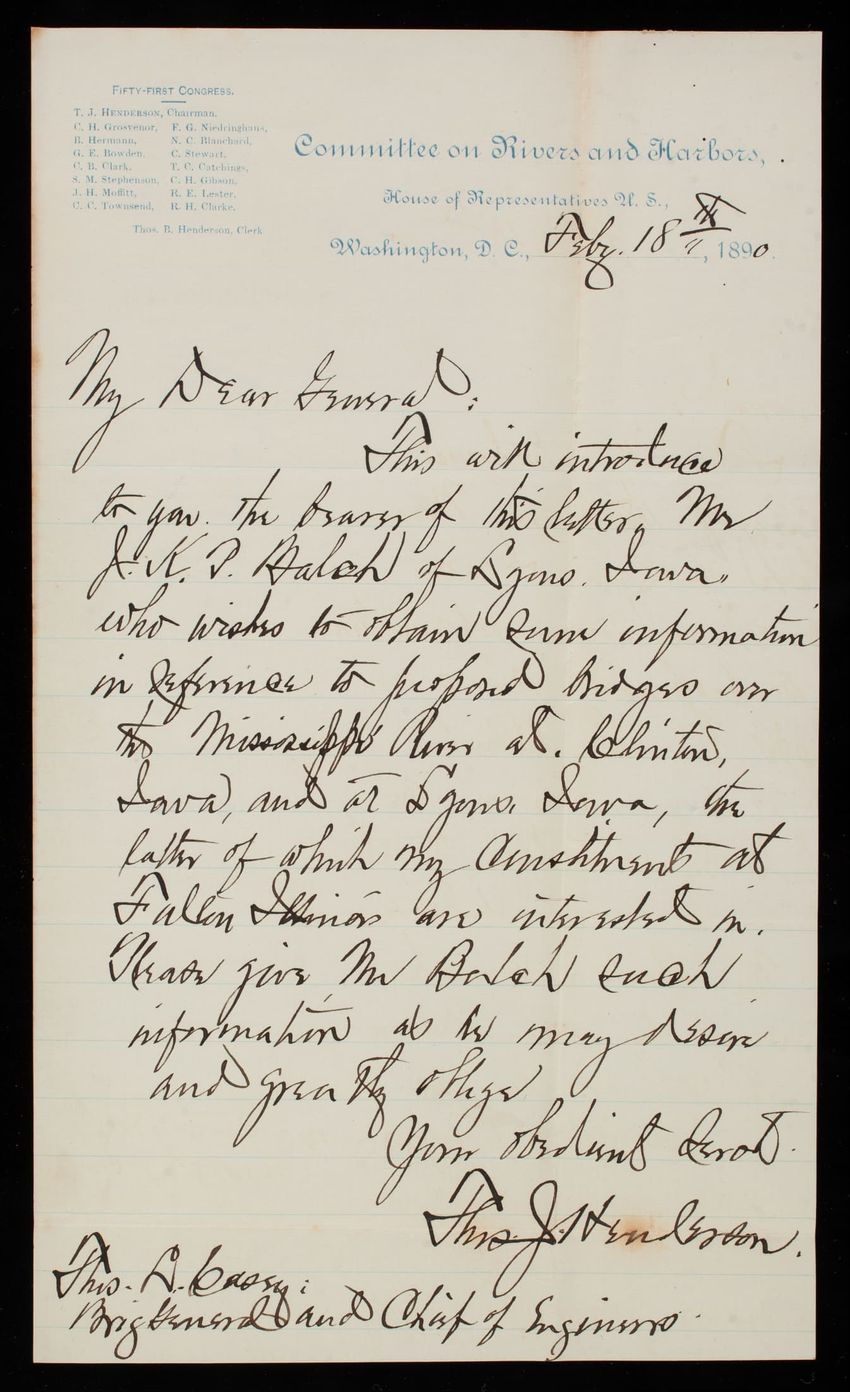 FIFTY-FIRST CONGRESS.
T. J. HENDERSON, Chairman.
C. H. Grosvenor, F. G. Niedringhaus,
B. Hermann, N. C. Blanchard,
G. E. Bowden, C. Stewart,
C. B. Clark, T. C. Catchings,
S. M. Stephenson, C. H. Gibson,
J. H. Moffitt, R. E. Lester,
C. C. Townsend, R. H. Clarke.
Thos. B. Henderson, Clerk
Committee on Rivers and Harbors,
House of Representatives U. S.,
Washington, D. C., Feby. 18th, 1890.
My Dear General:
This will introduce
to you the bearer of this letter, Mr
J. K. P. Balch of Lyons, Iowa,
who wishes to obtain some information
in reference to proposed bridges over
the Mississippi River at Clinton,
Iowa, and at Lyons Iowa, the
latter of which my Constituents at
Fulton Illinois are interested in.
Please give Mr Balch such
information as he may desire
and greatly oblige
Your obedient Servt.
Thos. J. Henderson.
Thos. L. Casey:
Brig General and Chief of Engineers.